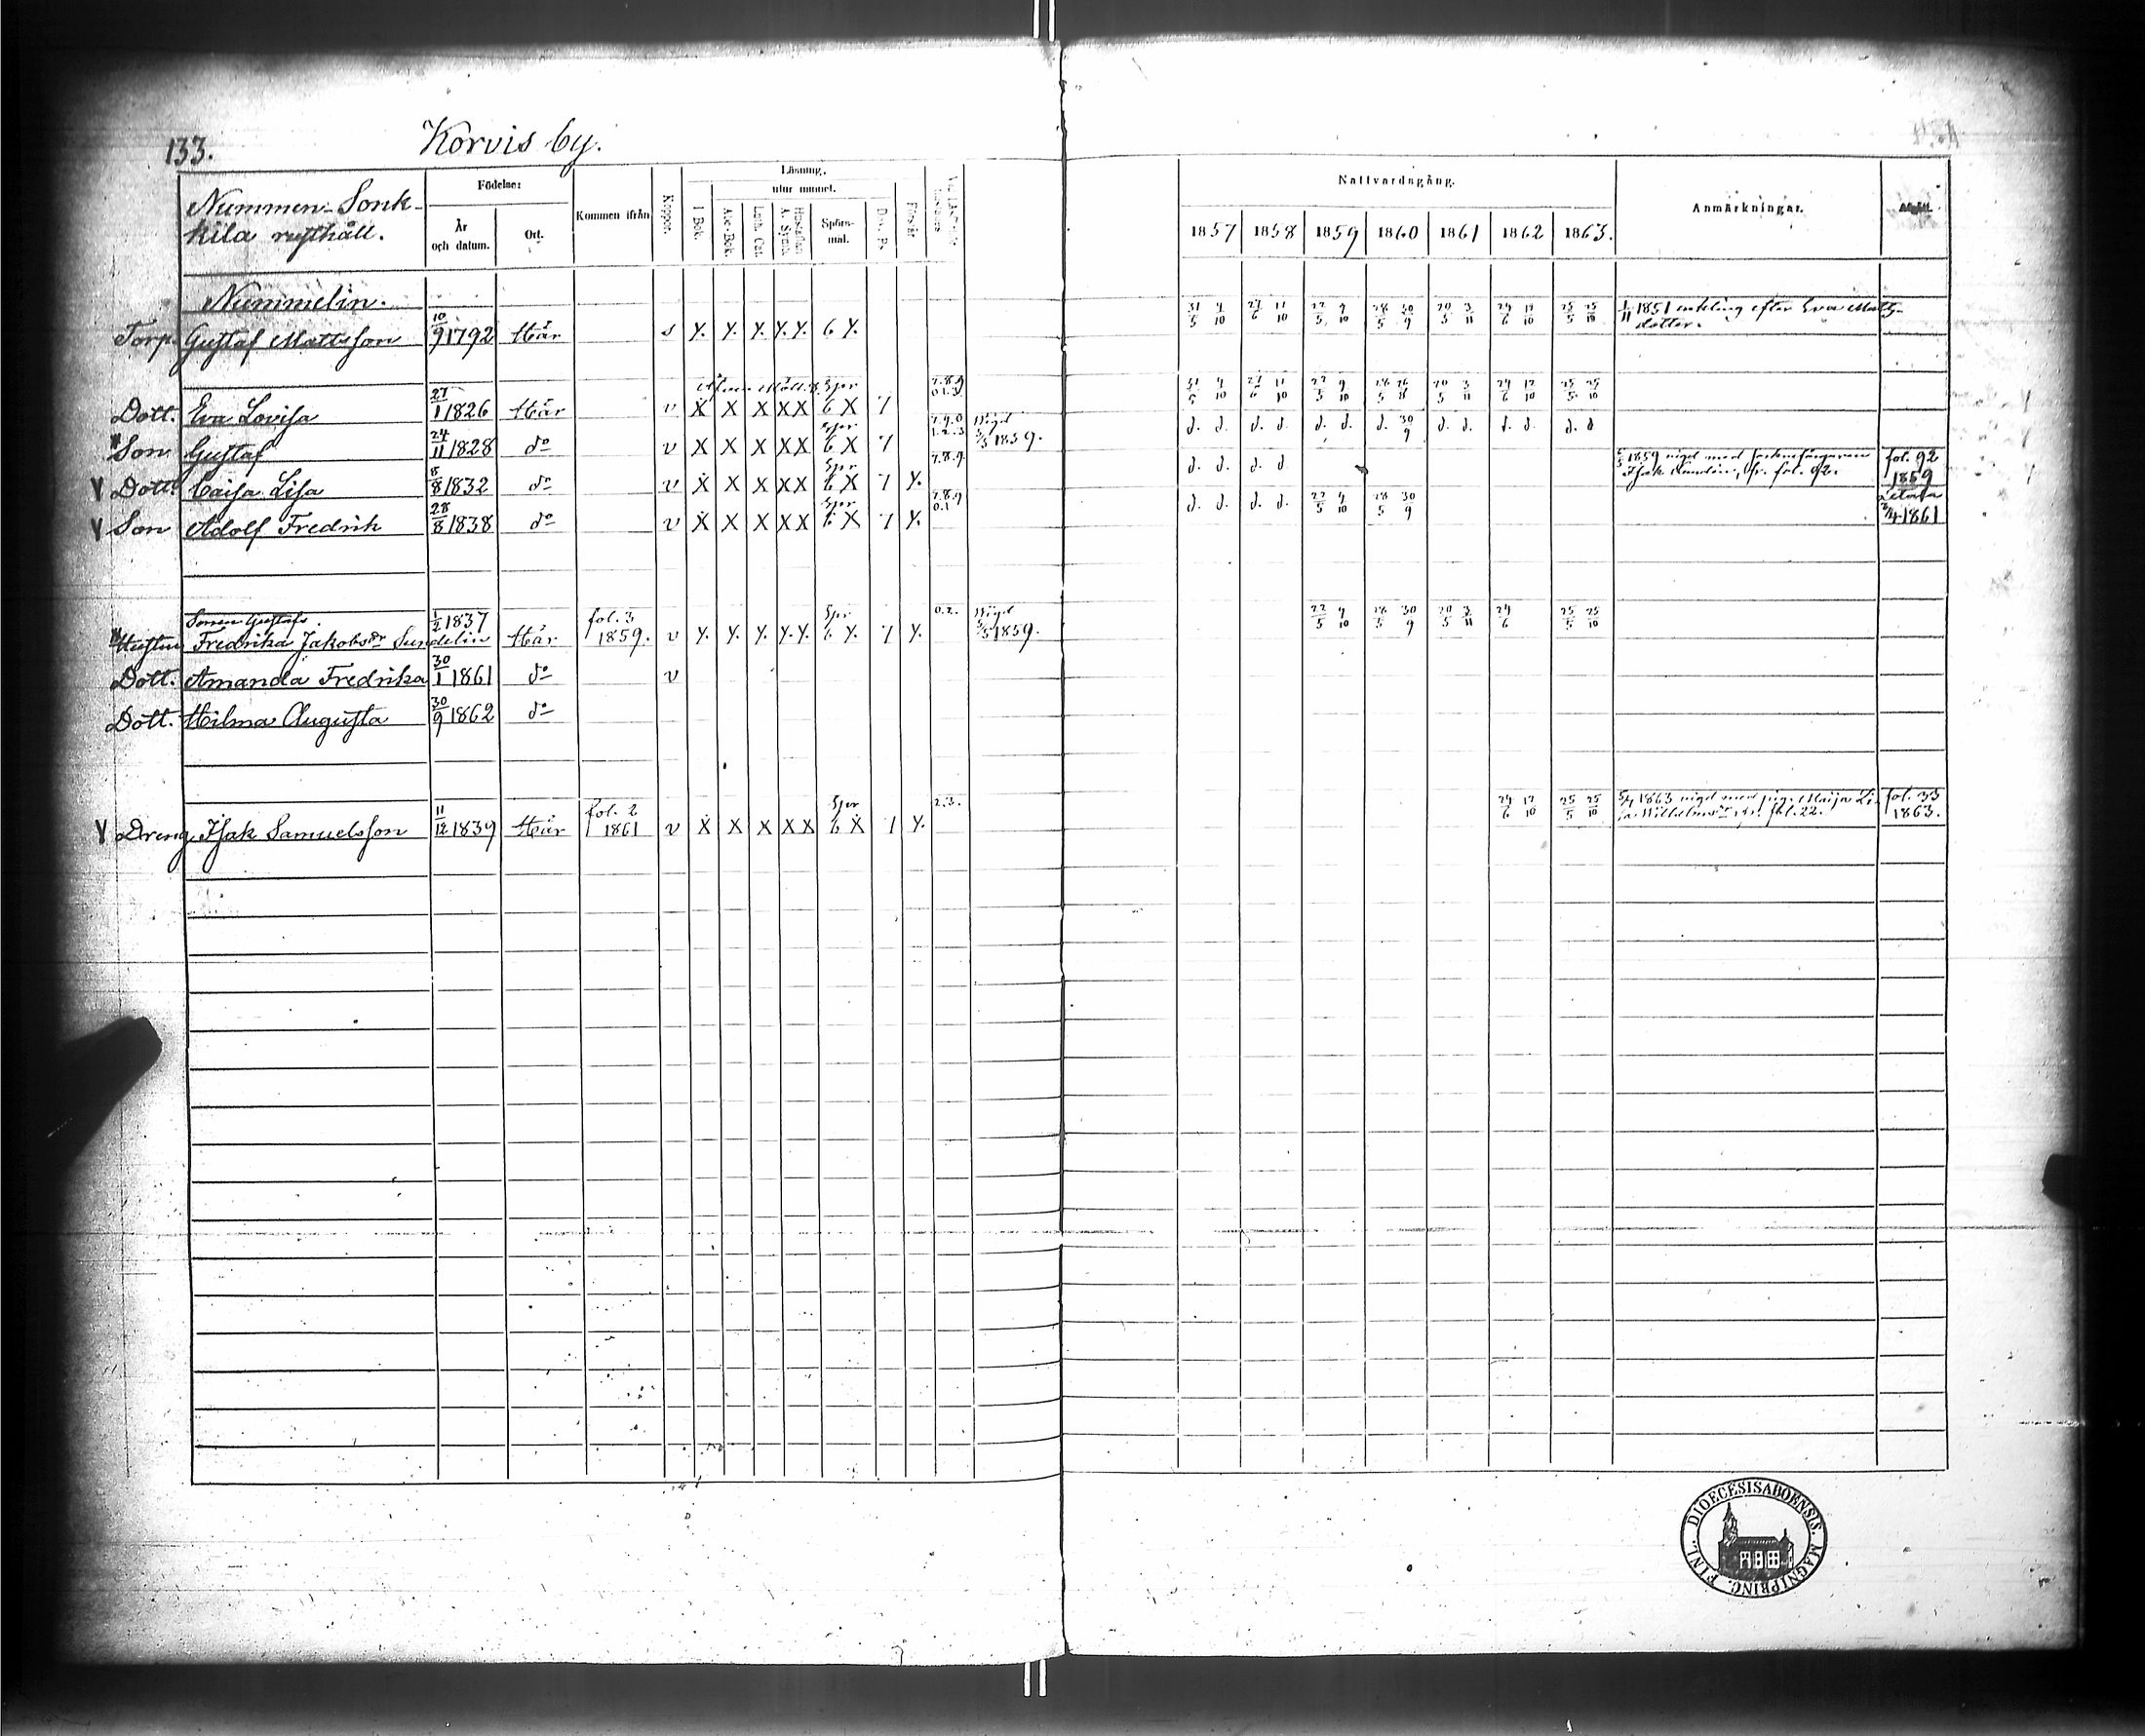 133.
Korvis by.
Nummen-Sonk-
kila rusthåll.
Födelse:
År
och datum.
Ort.
Kommen ifrån
Koppor.
Läsning,
utur minnet.
I Bok.
Abc-Bok.
Luth. Cat.
Hustaflan
A. Symb.
Spörs-
mål.
Dav. Ps.
Förstår
Nattvardsgång.
1857 1858 1859 1860 1861 1862 1863.
Anmärkningar.
Afgått.
Nummelin.
Torp. Gustaf Mattsson 10/9 1792 Här s y. y. y. y. y. 6 y. 31/5 4/10 27/6 11/10 22/5 9/10 28/5 30/9 20/5 3/11 24/6 12/10 25/5 25/10 1/11 1851 enkling efter Eva Matts-
dotter.
Dott. Eva Lovisa 27/1 1826 Här v X X X X X Spr 6 X 7 7.8.9 0.1.3. 31/5 4/10 27/6 11/10 22/5 9/10 28/5 26/8 20/5 3/11 24/6 12/10 25/5 25/10
Son Gustaf 24/11 1828 do v X X X X X Spr 6 X 7 7.9.0 1.2.3 Vigd 5/5 1859. d. d. d. d. d. d. d. 30/9 d. d. d. d. d. d
Dott. Caisa Lisa 8/8 1832 do v X X X X X Spr 6 X 7 y. 7.8.9. d. d. d. d 5/5 1859 vigd med Isak Sundin, fr. fol. 92. fol. 92 1859
Son Adolf Fredrik 28/8 1838 do v X X X X X Spr 6 X 7 y. 7.8.9 0.1 d. d. d. d. 22/5 9/10 28/5 30/9 1861
Sonen Gustafs
Hustru Fredrika Jakobsdr Sundelin 1/2 1837 Här fol. 3 1859. v y. y. y. y. y. Spr 6 y. 7 y. 0.2. Vigd 5/5 1859. 22/5 9/10 28/5 30/9 20/5 3/11 24/6 25/5 25/10
Dott. Amanda Fredrika 30/1 1861 do v
Dott. Hilma Augusta 30/9 1862 do
Dreng Isak Samuelsson 11/12 1839 Här fol. 2 1861 v X X X X X Spr 6 X 7 y. 2.3. 24/6 12/10 25/5 25/10 1863 vigd med pig. Maija Li-
sa Wilhelmsdr, fr. fol. 22. fol. 33 1863.
FINL. DIOECESIS ABOENSIS. MAGNI PRINC.